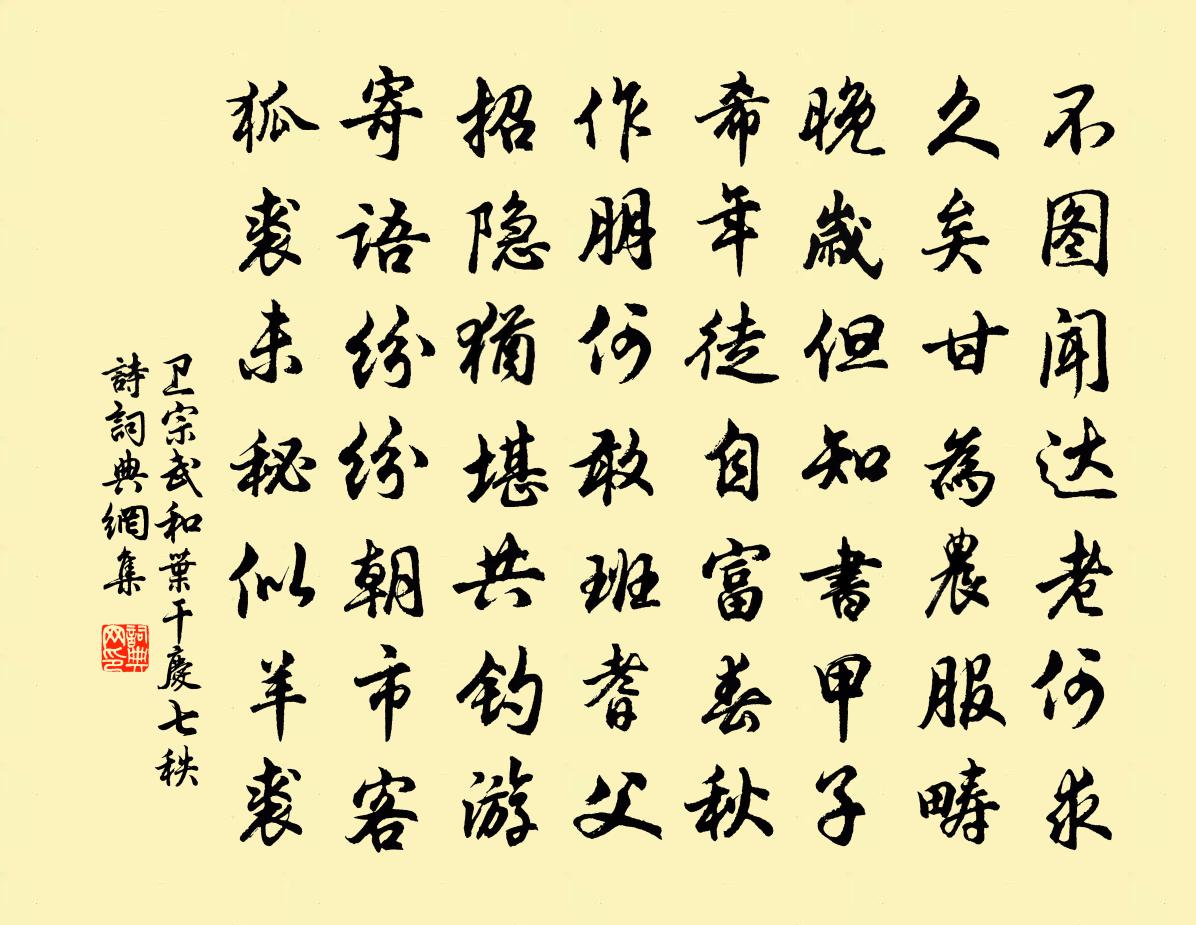 不图闻达老何求
久矣甘为農服畴
晚歳但知書甲子
希年徒自富春秋
作朋何敢班耆父
招隐猶堪共钓游
寄语纷纷朝市客
狐裘未秘似羊裘
卫宗武和葉干慶七秩
詩詞典網集
詞典
网印